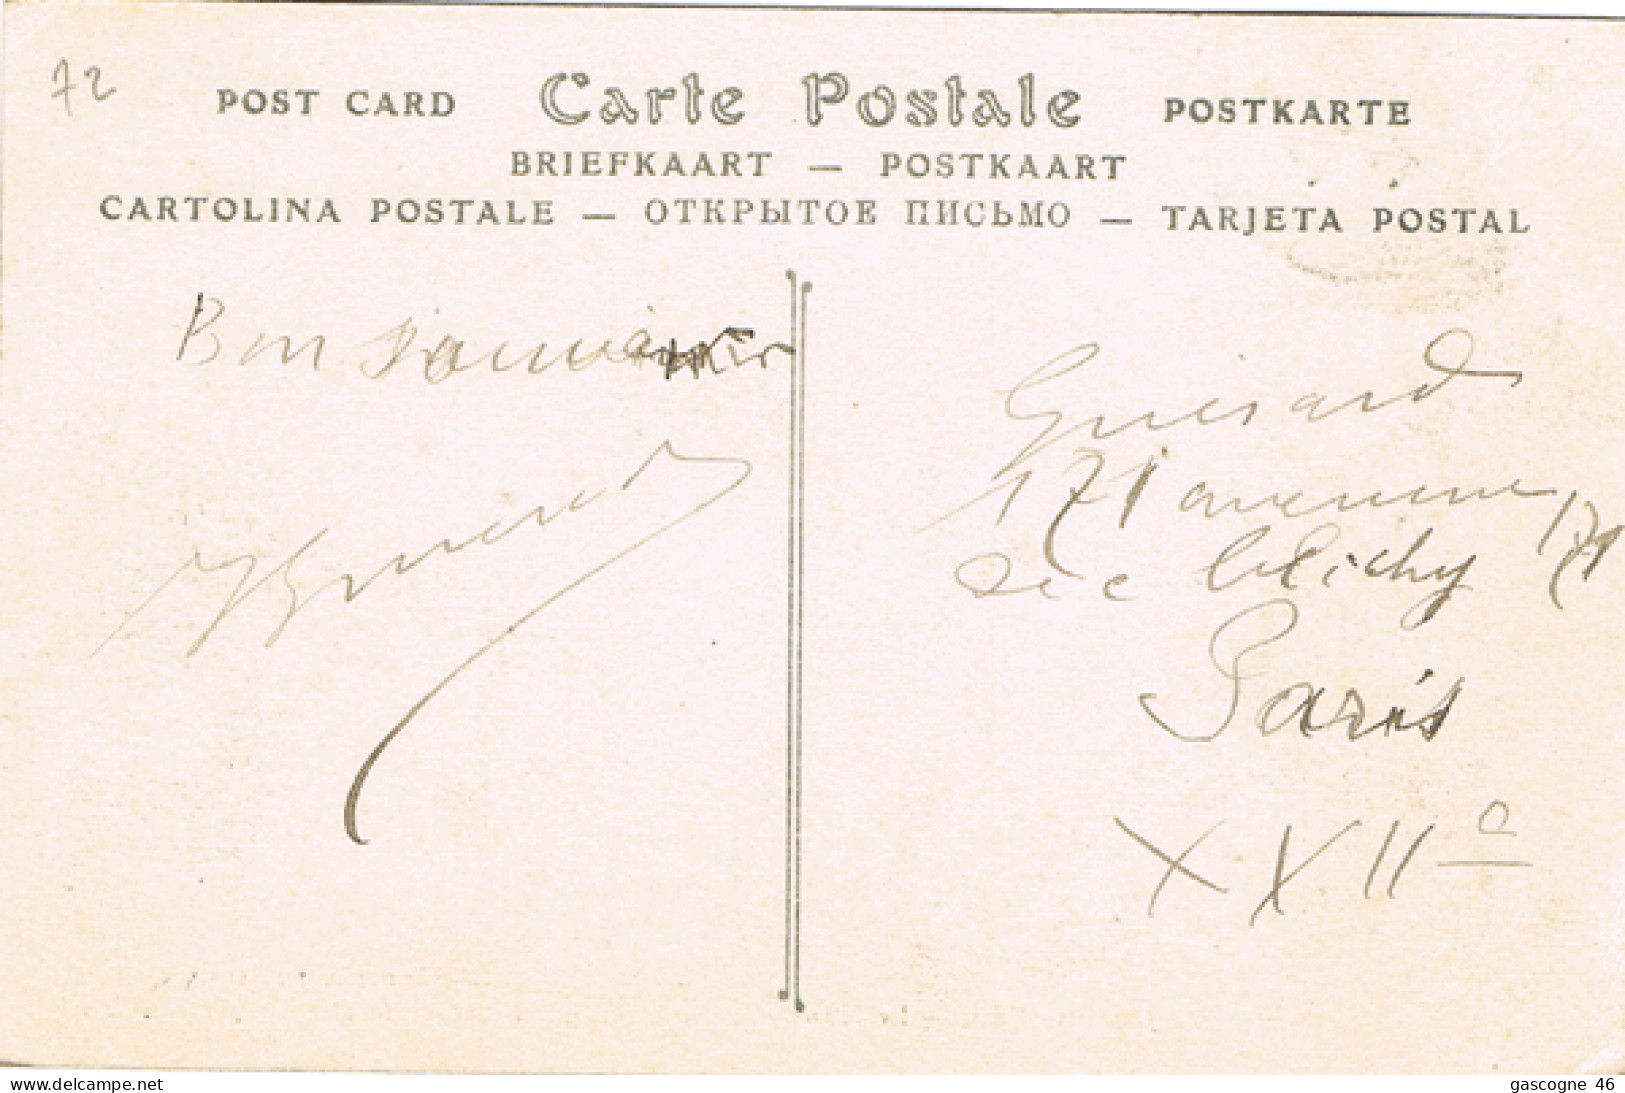 72
POST CARD Carte Postale POSTKARTE
BRIEFKAART — POSTKAART
CARTOLINA POSTALE — ОТКРЫТОЕ ПИСЬМО — TARJETA POSTAL
Bon
Guérard
171 avenue 171
de Clichy
Paris
XXII e
www.delcampe.net
gascogne 46